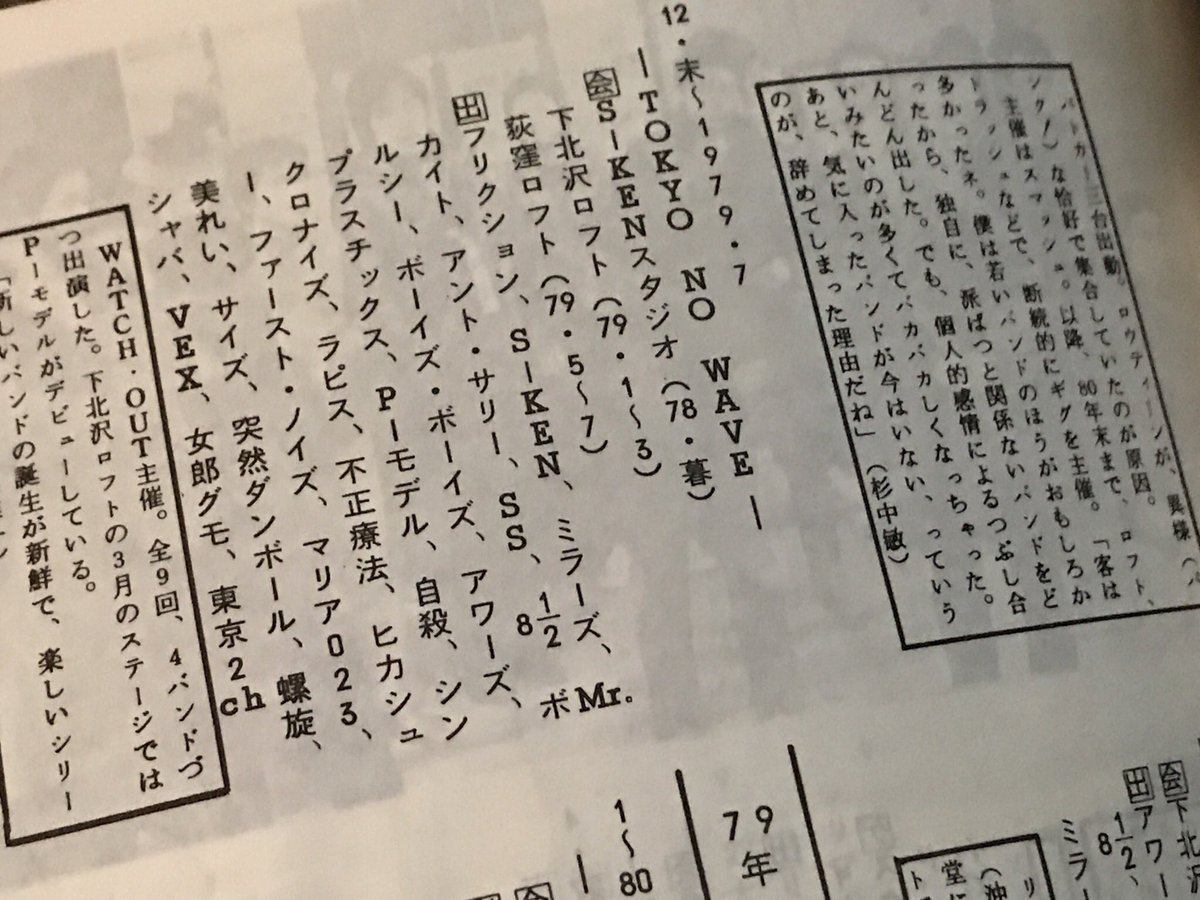 パトカー三台出動。ロウティーンが、異様（パ
ンク！）な恰好で集合していたのが原因。
主催はスマッシュ。以降、80年末まで、ロフト、
トラッシュなどで、断続的にギグを主催。「客は
多かったネ。僕は若いバンドのほうがおもしろか
ったから、独自に、派ばつと関係ないバンドをど
んどん出した。でも、個人的感情によるつぶし合
いみたいのが多くてバカバカしくなっちゃった。
あと、気に入ったバンドが今はいない、っていう
のが、辞めてしまった理由だね」（杉中敏）
12・末〜1979・7
―TOKYO NO WAVE―
会S-KENスタジオ（78・暮）
下北沢ロフト（79・1〜3）
荻窪ロフト（79・5〜7）
出フリクション、S-KEN、ミラーズ、Mr.
カイト、アント・サリー、SS、8½、ボ
ルシー、ボーイズ・ボーイズ、アワーズ、
プラスチックス、P-モデル、自殺、シン
クロナイズ、ラピス、不正療法、ヒカシュ
ー、ファースト・ノイズ、マリア023、
美れい、サイズ、突然ダンボール、螺旋、
シャバ、VEX、女郎グモ、東京2ch
WATCH・OUT主催。全9回、4バンドづ
つ出演した。下北沢ロフトの3月のステージでは
P-モデルがデビューしている。
「新しいバンドの誕生が新鮮で、楽しいシリー
会下北沢
出アワー
8½、
ミラー
79年
1〜80
会